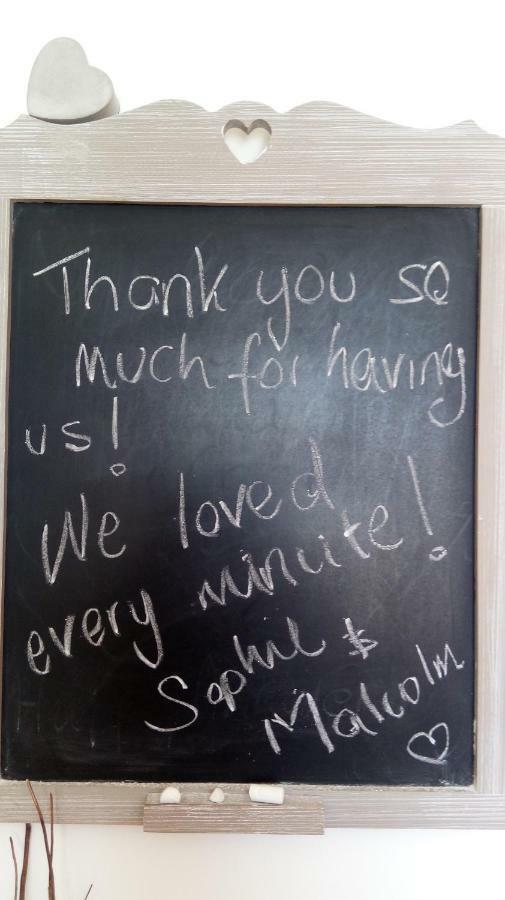 Thank you so
much for having
us!
We loved
every minute!
Sophie &
Malcolm